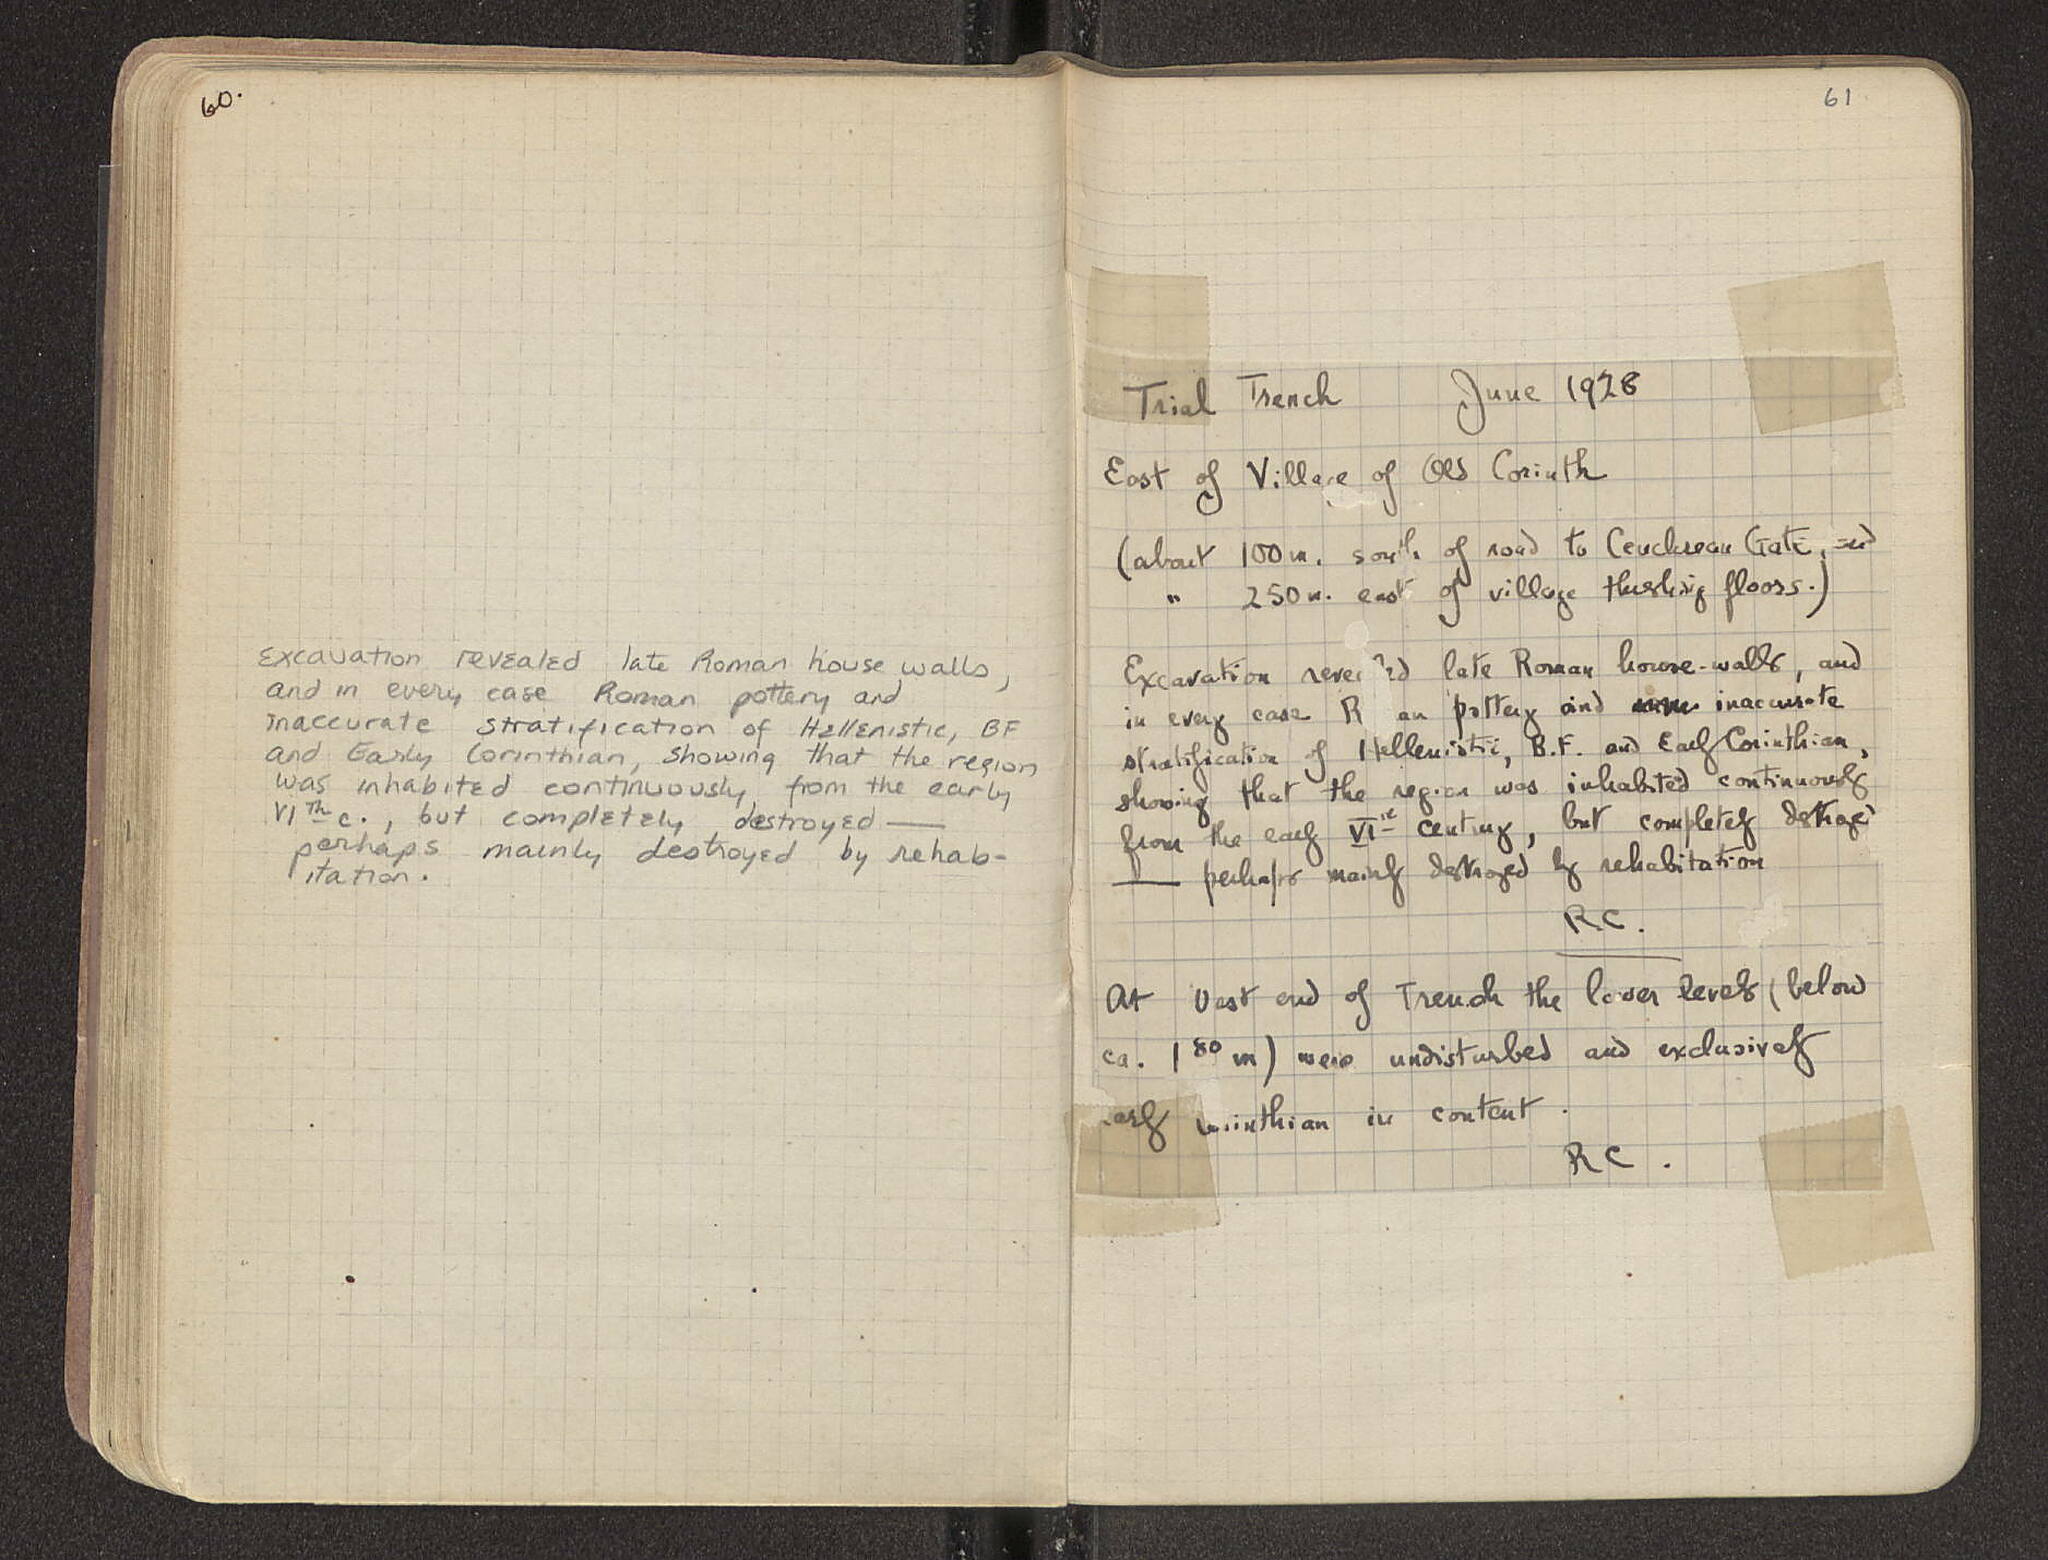 60.
Excavation revealed late Roman house walls,
and in every case Roman pottery and
inaccurate stratification of Hellenistic, BF
and Early Corinthian, showing that the region
was inhabited continuously from the early
VIth c., but completely destroyed —
perhaps mainly destroyed by rehab-
itation.
61
Trial Trench June 1928
East of Village of Old Corinth
(about 100 m. south of road to Cenchrean Gate, and
" 250 m. east of village threshing floors.)
Excavation revealed late Roman house-walls, and
in every case R an pottery and inaccurate
stratification of Hellenistic, B.F. and Early Corinthian,
showing that the region was inhabited continuously
from the early VIth century, but completely destroyed
— perhaps mainly destroyed by rehabitation
R.C.
At West end of Trench the lower levels (below
ca. 1 80 m) were undisturbed and exclusively
early Corinthian in content.
RC.